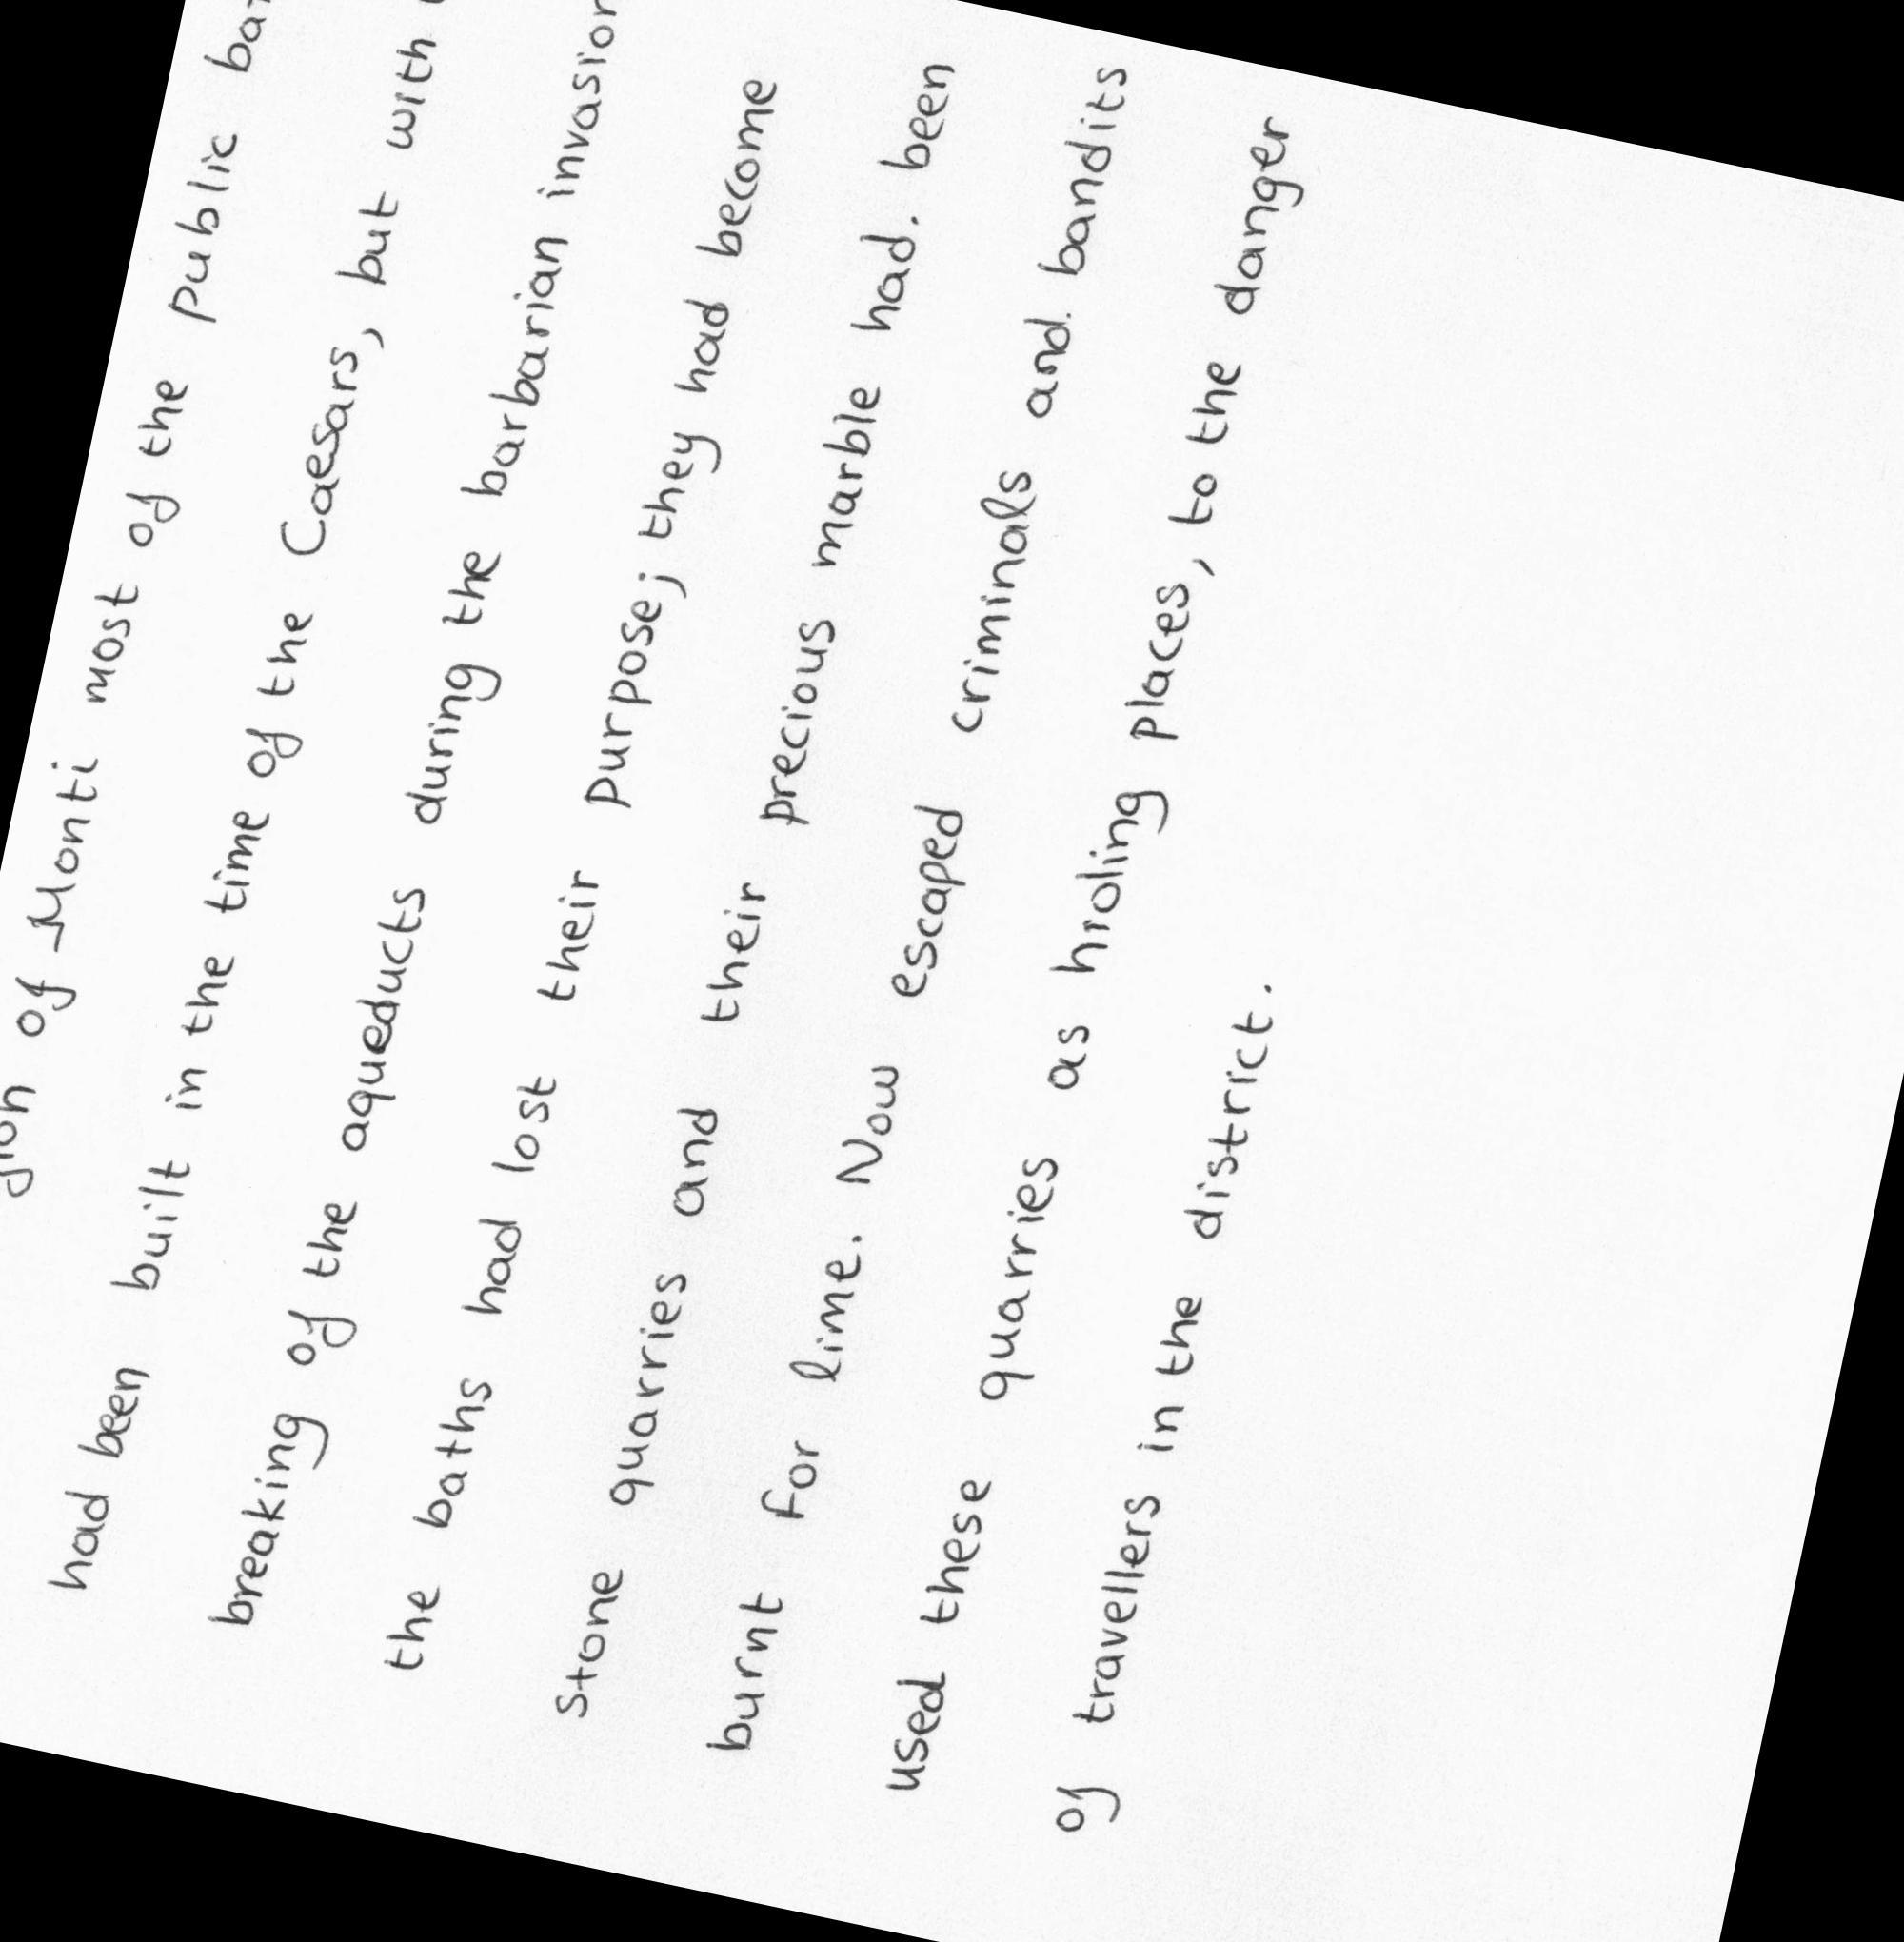 of Monti most of the public
had been built in the time of the Caesars, but with
breaking of the aqueducts during the barbarian
the baths had lost their purpose; they had become
stone quarries and their precious marble had. been
burnt for lime. Now escaped criminals and. bandits
used these quarries as hroling places, to the danger
of travellers in the district.